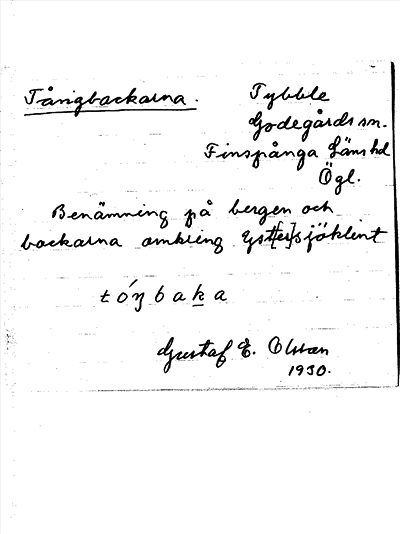 Tångbackarna.
Tybble
Godegårds sn.
Finspånga Läns hd
Ögl.
Benämning på bergen och
backarna omkring Yst[er]sjöklint
tóŋbaka
Gustaf E. Olsson
1930.